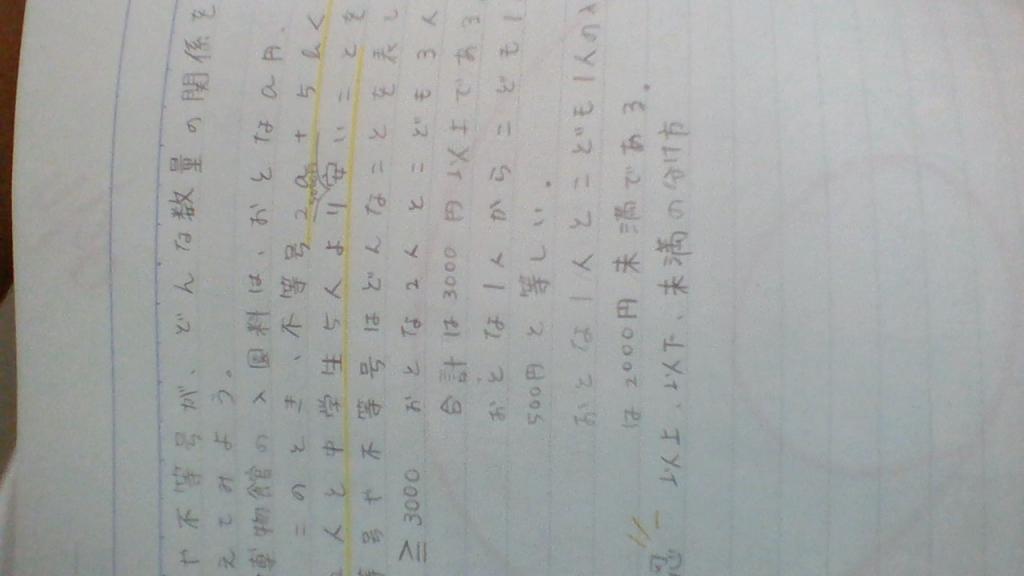 や不等号が、どんな数量の関係を
えてみよう。
博物館の入園料は、おとなa円、
このとき、不等号2a+5b<
人と中学生5人より安いことを
等号や不等号はどんなことを表し
≧3000 おとな2人とこども3人
合計は3000円以上である
おとな1人からこども1
500円と等しい。
おとな1人とこども1人の入
は2000円未満である。
以上、以下、未満の分け方